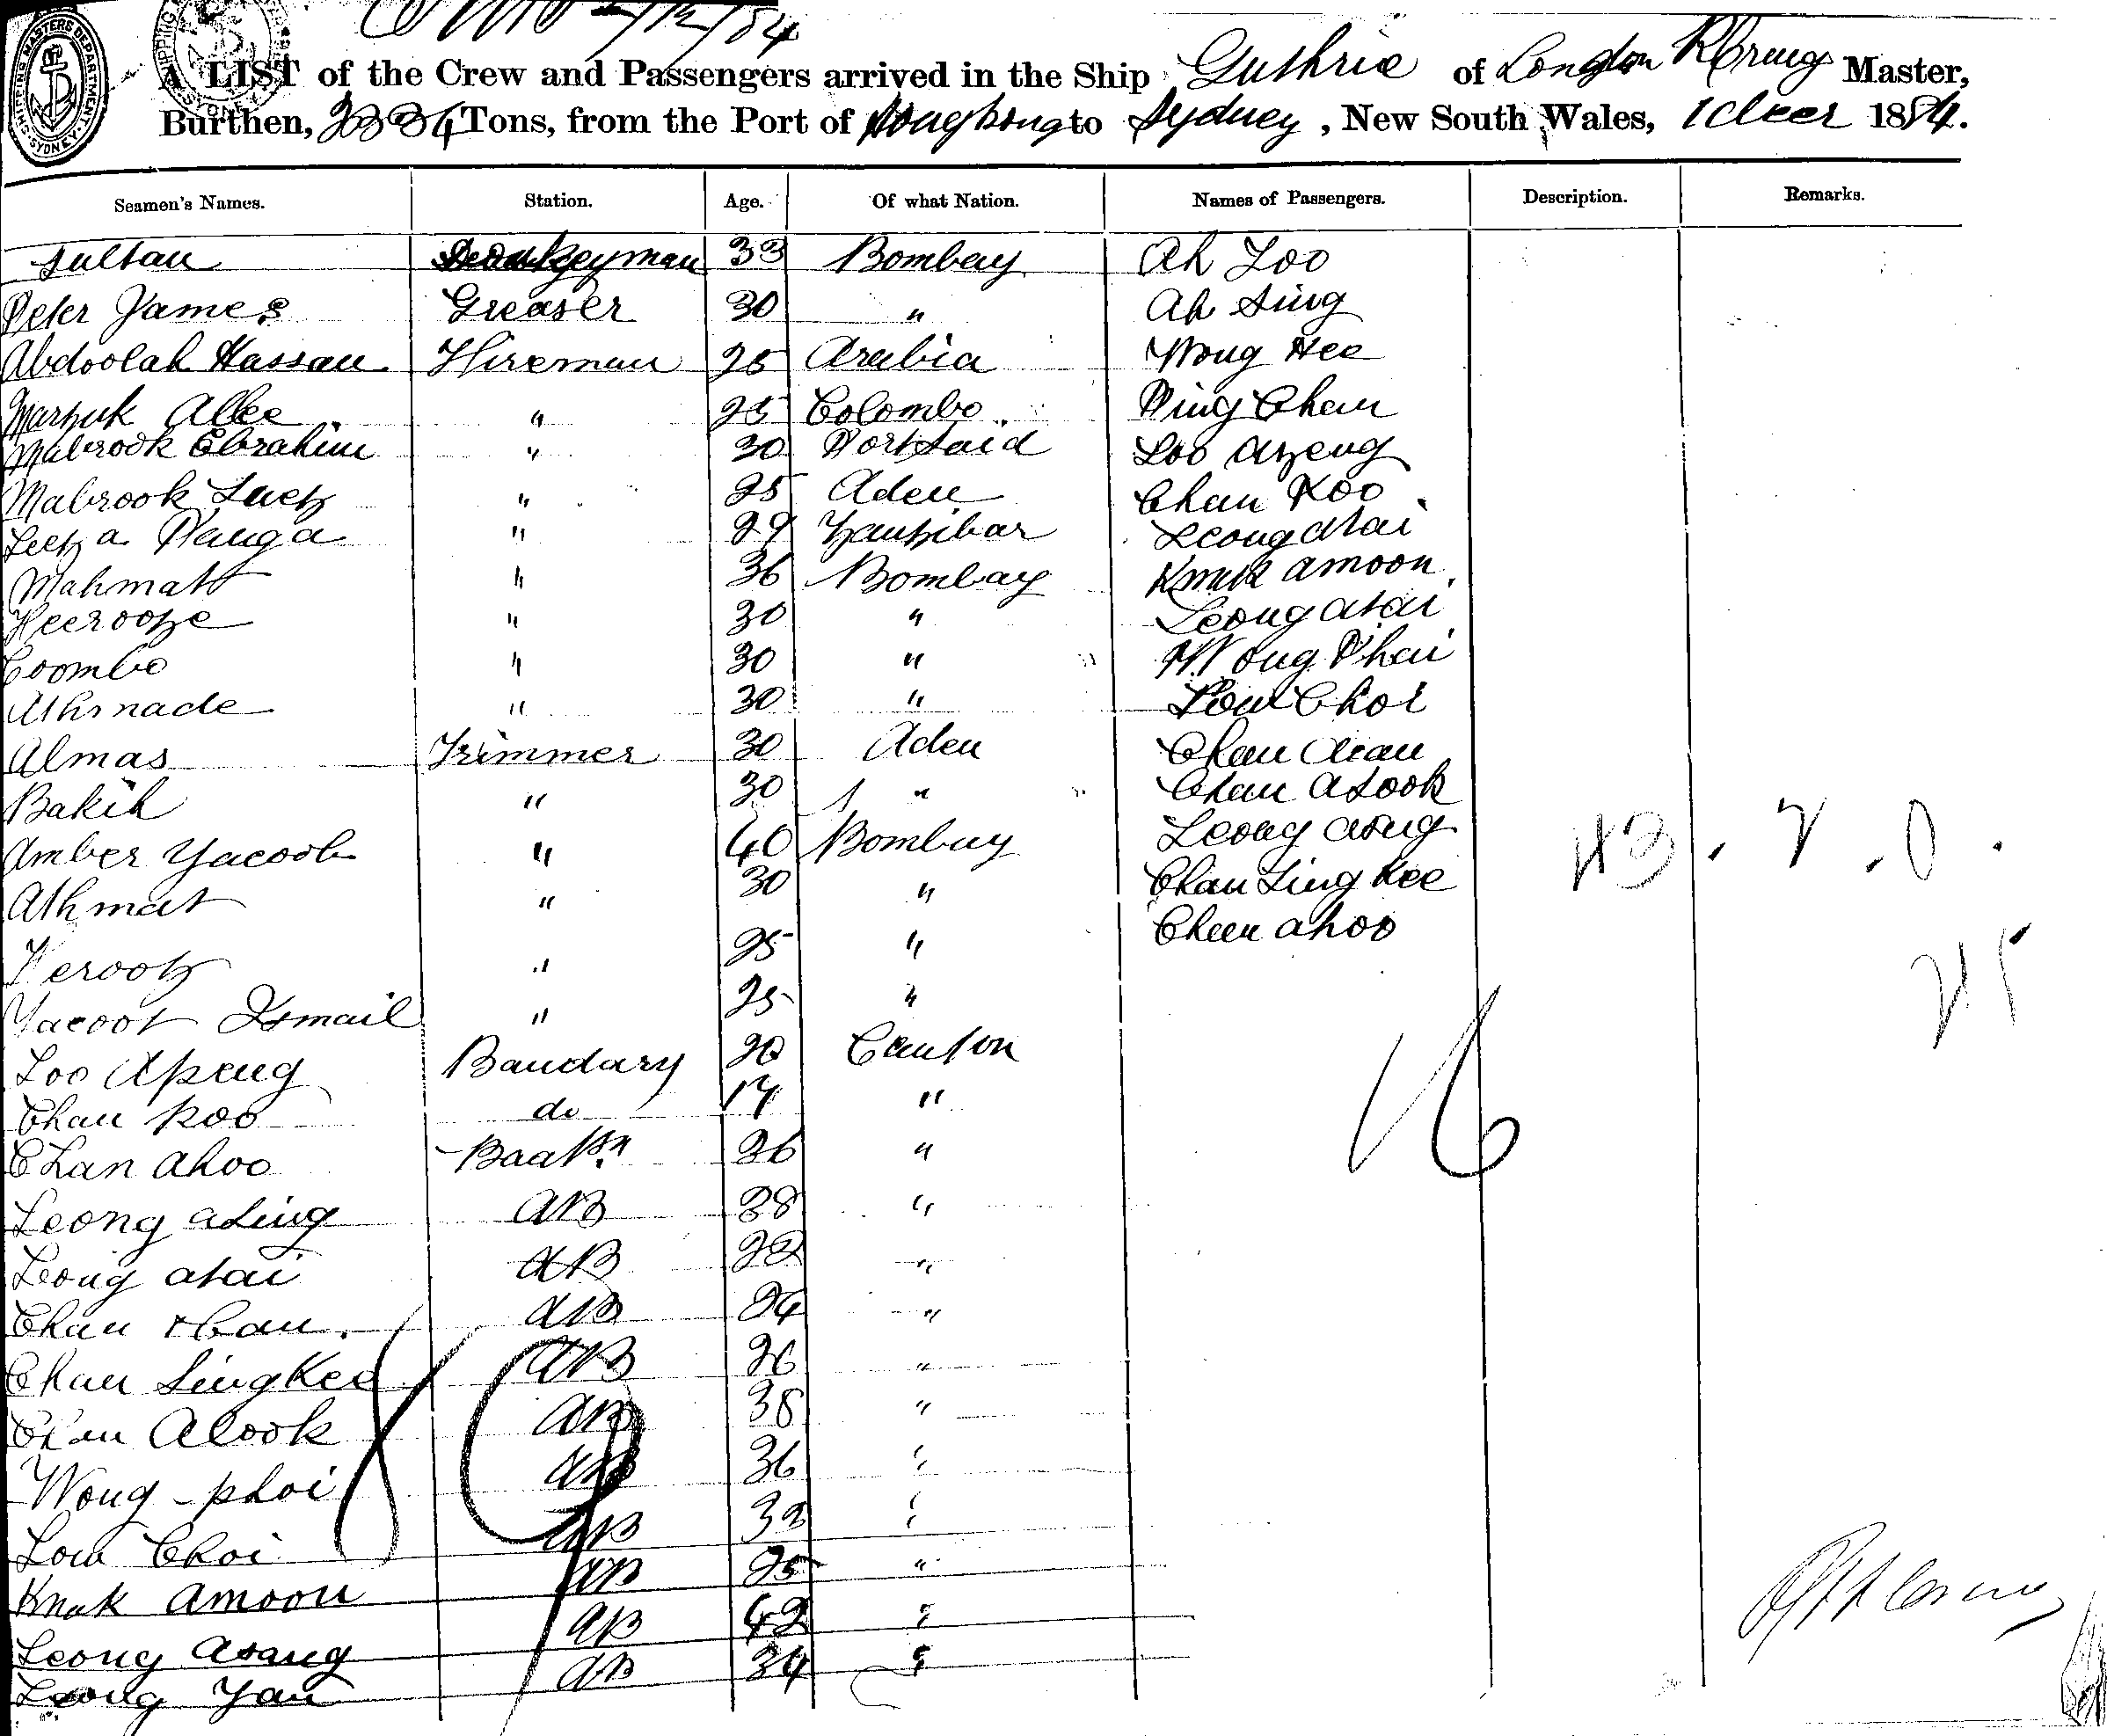 2/12/84
A LIST of the Crew and Passengers arrived in the Ship Guthrie of London Master,
Burthen, Tons, from the Port of Hongkong to Sydney, New South Wales, 1 decr 1884.
Seamen's Names. Station. Age. Of what Nation. Names of Passengers. Description. Remarks.
Sultan Donkeyman 33 Bombay Ah Loo
Peter James Greaser 30 " Ah Sing
Abdoolah Hassan Fireman 25 Arabia Wong Hee
Marzuk Allee " 25 Colombo Ping Chan
Mabrook Ebrahim " 30 Port Said Loo Apeng
Mabrook Suez " 25 Aden Chan Koo
" 29 Zanzibar Leong Atai
Mahmat " 36 Bombay Knuk Amoon
Feerooze " 30 " Leong Atai
Coombo " 30 " Wong Phoi
Athmade " 30 " Low Choi
Almas Trimmer 30 Aden Chan
Bakih " 30 " Chan Alook
Amber Yacoob " 40 Bombay Leong
Athmat " 30 " Chan Sing Kee
Ferooz " 25 " Chan Ahoo
Yacoot Ismail " 25 "
Loo Apeng Bandary 20 Canton
Chan Koo do 17 "
Chan Ahoo 26 "
Leong Aling AB 38 "
Leong Atai AB 22 "
Chan AB 24 "
Chan Sing Kee AB 26 "
Chan Alook AB 38 "
Wong Phoi AB 36 "
Low Choi AB 32 "
Knuk Amoon AB 25 "
Leong Asang AB 42 "
Leong Yan AB 34 "
16
19